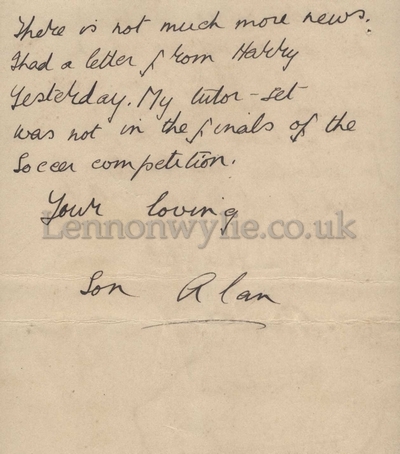 There is not much more news.
I had a letter from Harry
Yesterday. My tutor-set
was not in the finals of the
Soccer competition.
Your loving
Lennonwylie.co.uk
Son Alan